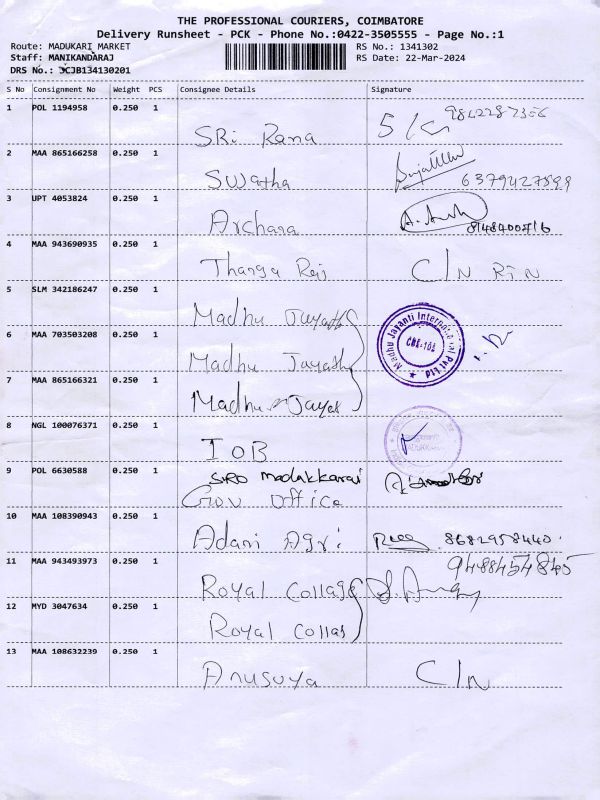 THE PROFESSIONAL COURIERS, COIMBATORE
Delivery Runsheet - PCK - Phone No.:0422-3505555 - Page No.:1
Route: MADUKARI MARKET RS No.: 1341302
Staff: MANIKANDARAJ RS Date: 22-Mar-2024
DRS No.: JCJB134130201
S No Consignment No Weight PCS Consignee Details Signature
1 POL 1194958 0.250 1
SRi Rana
2 MAA 865166258 0.250 1
Swatha 6379427899
3 UPT 4053824 0.250 1
Archara
4 MAA 943690935 0.250 1
Thanga Raj C/N RTN
5 SLM 342186247 0.250 1
Madhu Jayath
6 MAA 703503208 0.250 1
Madhu Jayath
Madhu Jayanti International Pvt Ltd
CBE-102
7 MAA 865166321 0.250 1
Madhu Jayat
8 NGL 100076371 0.250 1
IOB
9 POL 6630588 0.250 1
SRO madukkarai
Gov Office
10 MAA 108390943 0.250 1
Adani Agri 8682958440
11 MAA 943493973 0.250 1
Royal Collage 9488454845
12 MYD 3047634 0.250 1
Royal Collag
13 MAA 108632239 0.250 1
Anusuya C/N